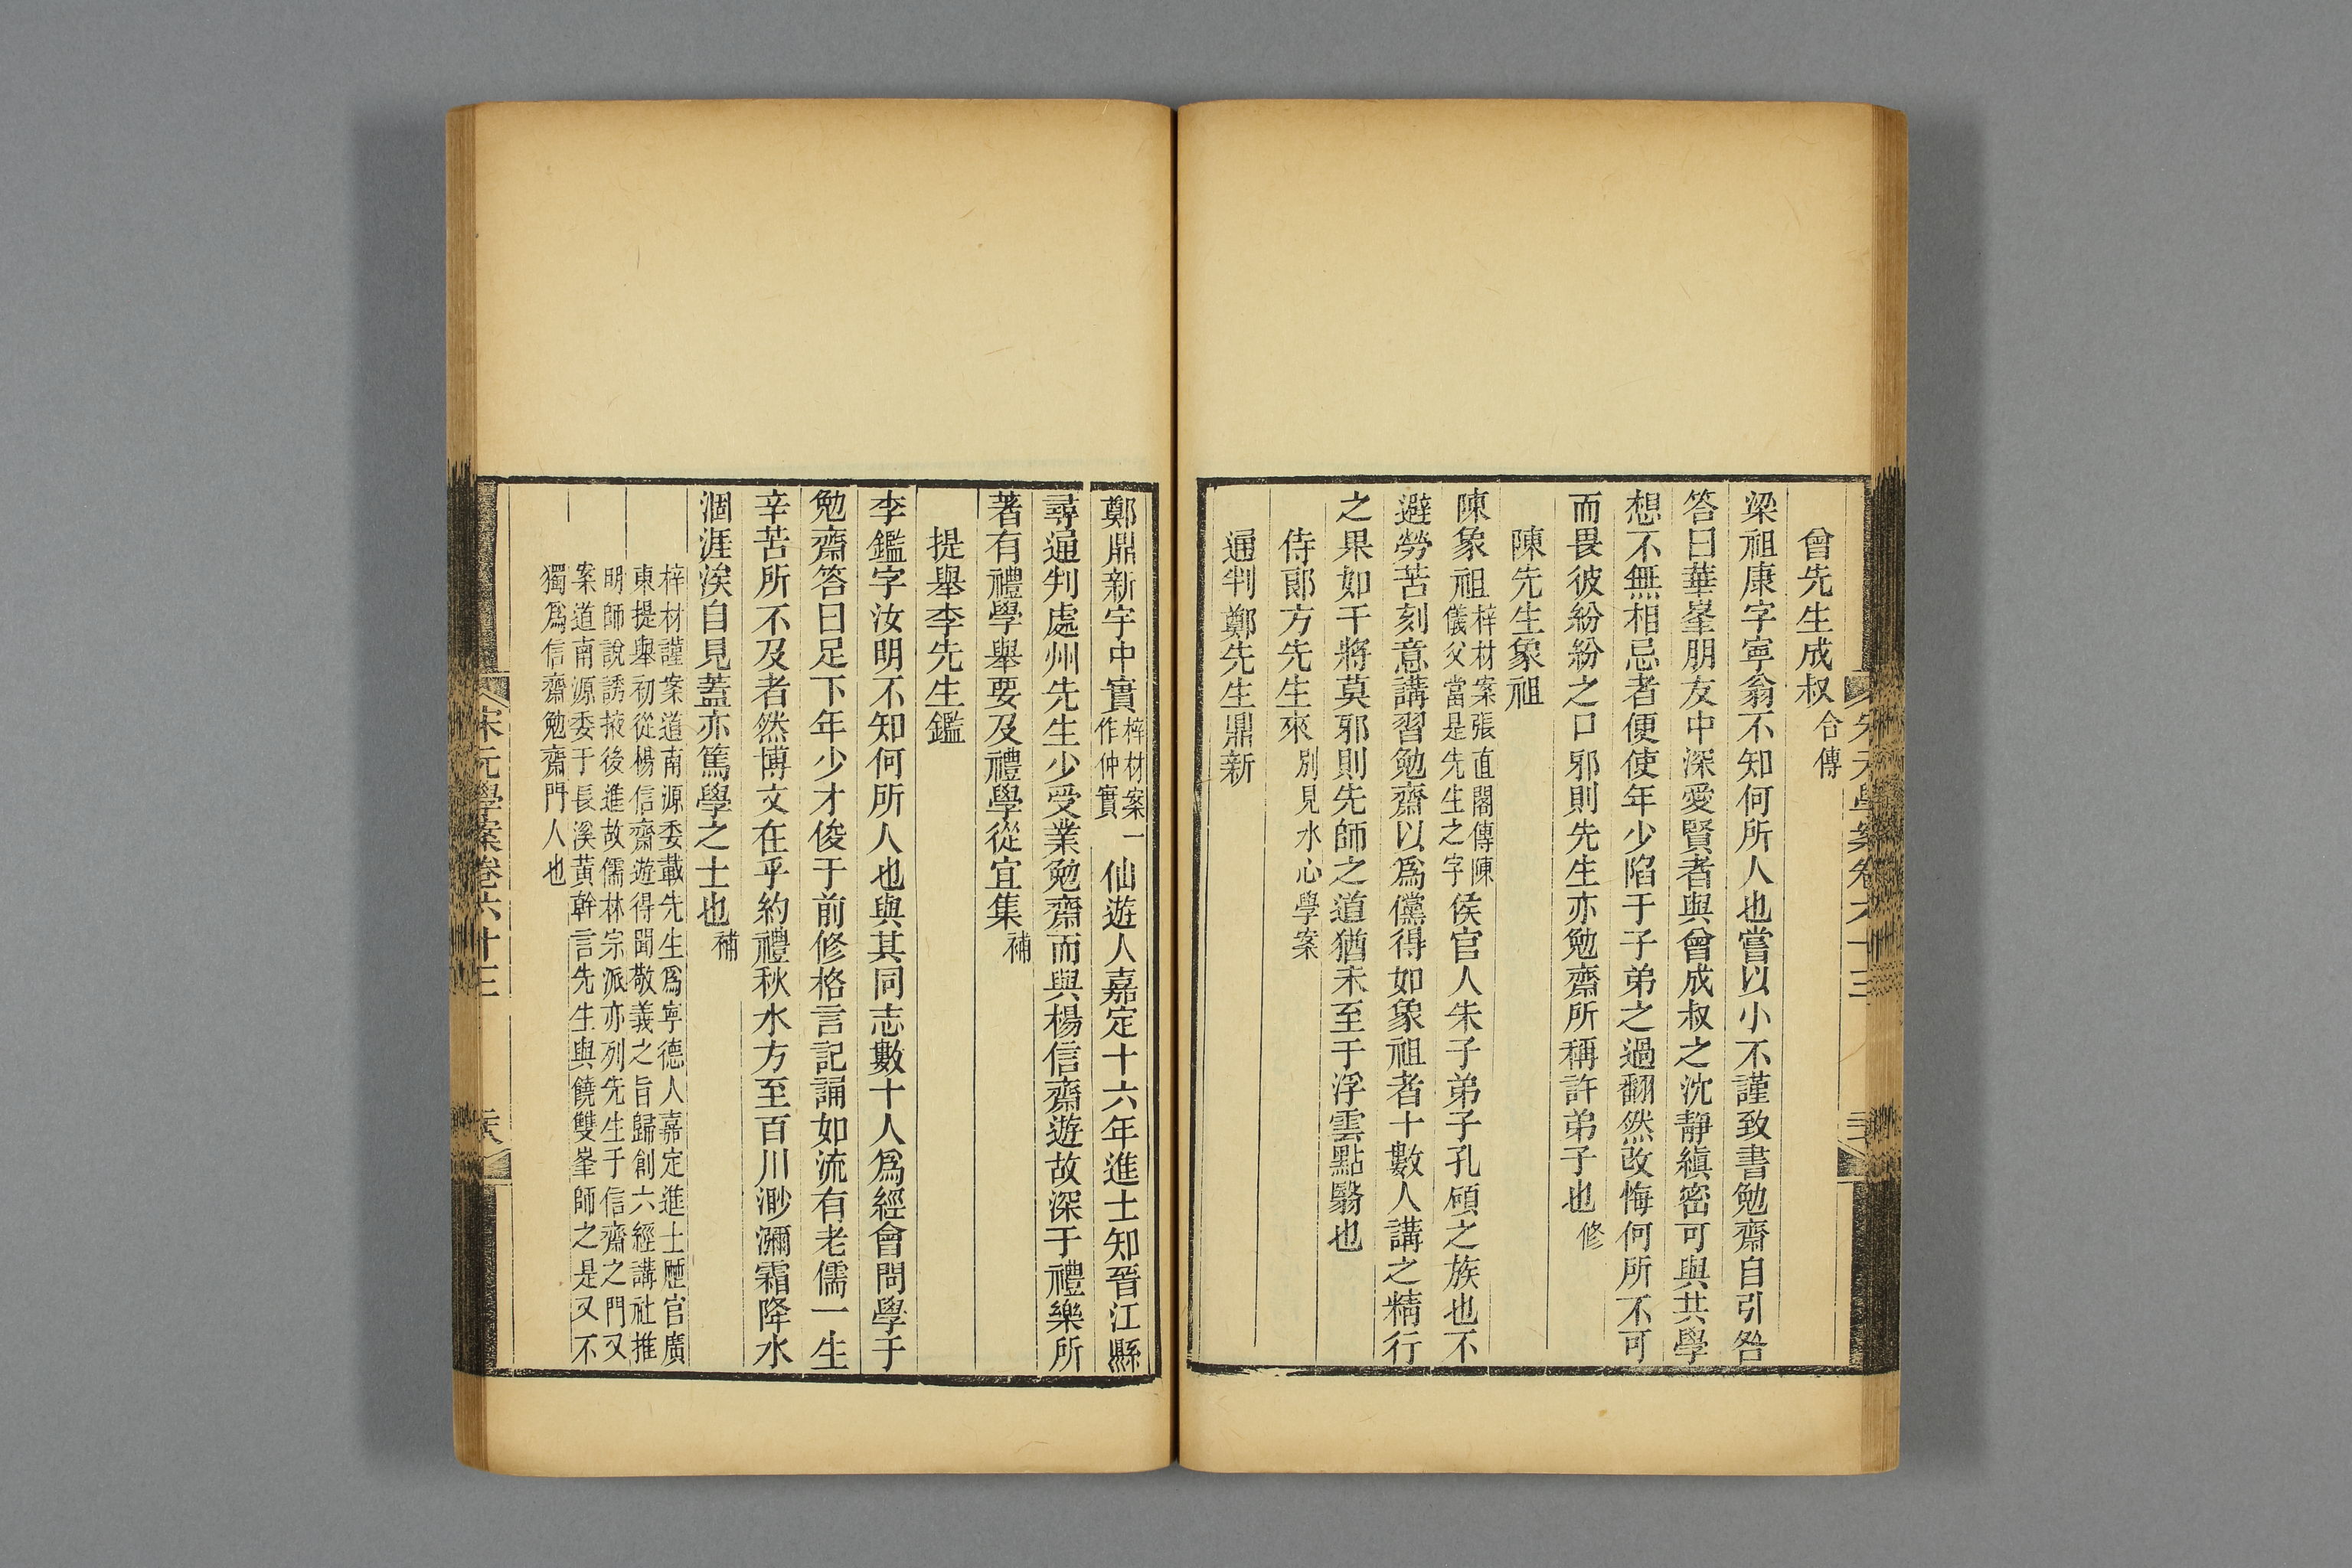 曾先生成叔合傳
梁祖康字寧翁不知何所人也嘗以小不謹致書勉齋自引咎
答曰華峯朋友中深愛賢者與曾成叔之沈靜縝密可與共學
想不無相忌者便使年少陷于子弟之過翻然改悔何所不可
而畏彼紛紛之口邪則先生亦勉齋所稱許弟子也修
陳先生象祖
陳象祖梓材案張直閣傳陳儀父當是先生之字侯官人朱子弟子孔碩之族也不
避勞苦刻意講習勉齋以爲儻得如象祖者十數人講之精行
之果如干將莫邪則先師之道猶未至于浮雲點翳也
侍郎方先生來別見水心學案
通判鄭先生鼎新
鄭鼎新字中實梓材案一作仲實仙遊人嘉定十六年進士知晉江縣
尋通判處州先生少受業勉齋而與楊信齋遊故深于禮樂所
著有禮學舉要及禮學從宜集補
提舉李先生鑑
李鑑字汝明不知何所人也與其同志數十人爲經會問學于
勉齋答曰足下年少才俊于前修格言記誦如流有老儒一生
辛苦所不及者然博文在乎約禮秋水方至百川渺瀰霜降水
涸涯涘自見蓋亦篤學之士也補
梓材謹案道南源委載先生爲寧德人嘉定進士歷官廣
東提舉初從楊信齋遊得聞敬義之旨歸創六經講社推
明師說誘掖後進故儒林宗派亦列先生于信齋之門又
案道南源委于長溪黃榦言先生與饒雙峯師之是又不
獨爲信齋勉齋門人也
宋元學案卷六十三